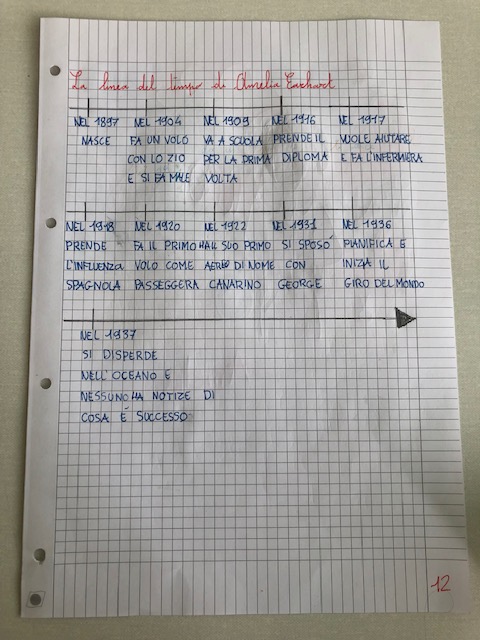 La linea del tempo di Amelia Earhart
NEL 1897 NEL 1904 NEL 1909 NEL 1916 NEL 1917
NASCE FA UN VOLO VA A SCUOLA PRENDE IL VUOLE AIUTARE
CON LO ZIO PER LA PRIMA DIPLOMA E FA L'INFERMIERA
E SI FA MALE VOLTA
NEL 1918 NEL 1920 NEL 1922 NEL 1931 NEL 1936
PRENDE FA IL PRIMO HA IL SUO PRIMO SI SPOSÒ PIANIFICA E
L'INFLUENZA VOLO COME AEREO DI NOME CON INIZIA IL
SPAGNOLA PASSEGGERA CANARINO GEORGE GIRO DEL MONDO
NEL 1937
SI DISPERDE
NELL'OCEANO E
NESSUNO HA NOTIZE DI
COSA É SUCCESSO
12